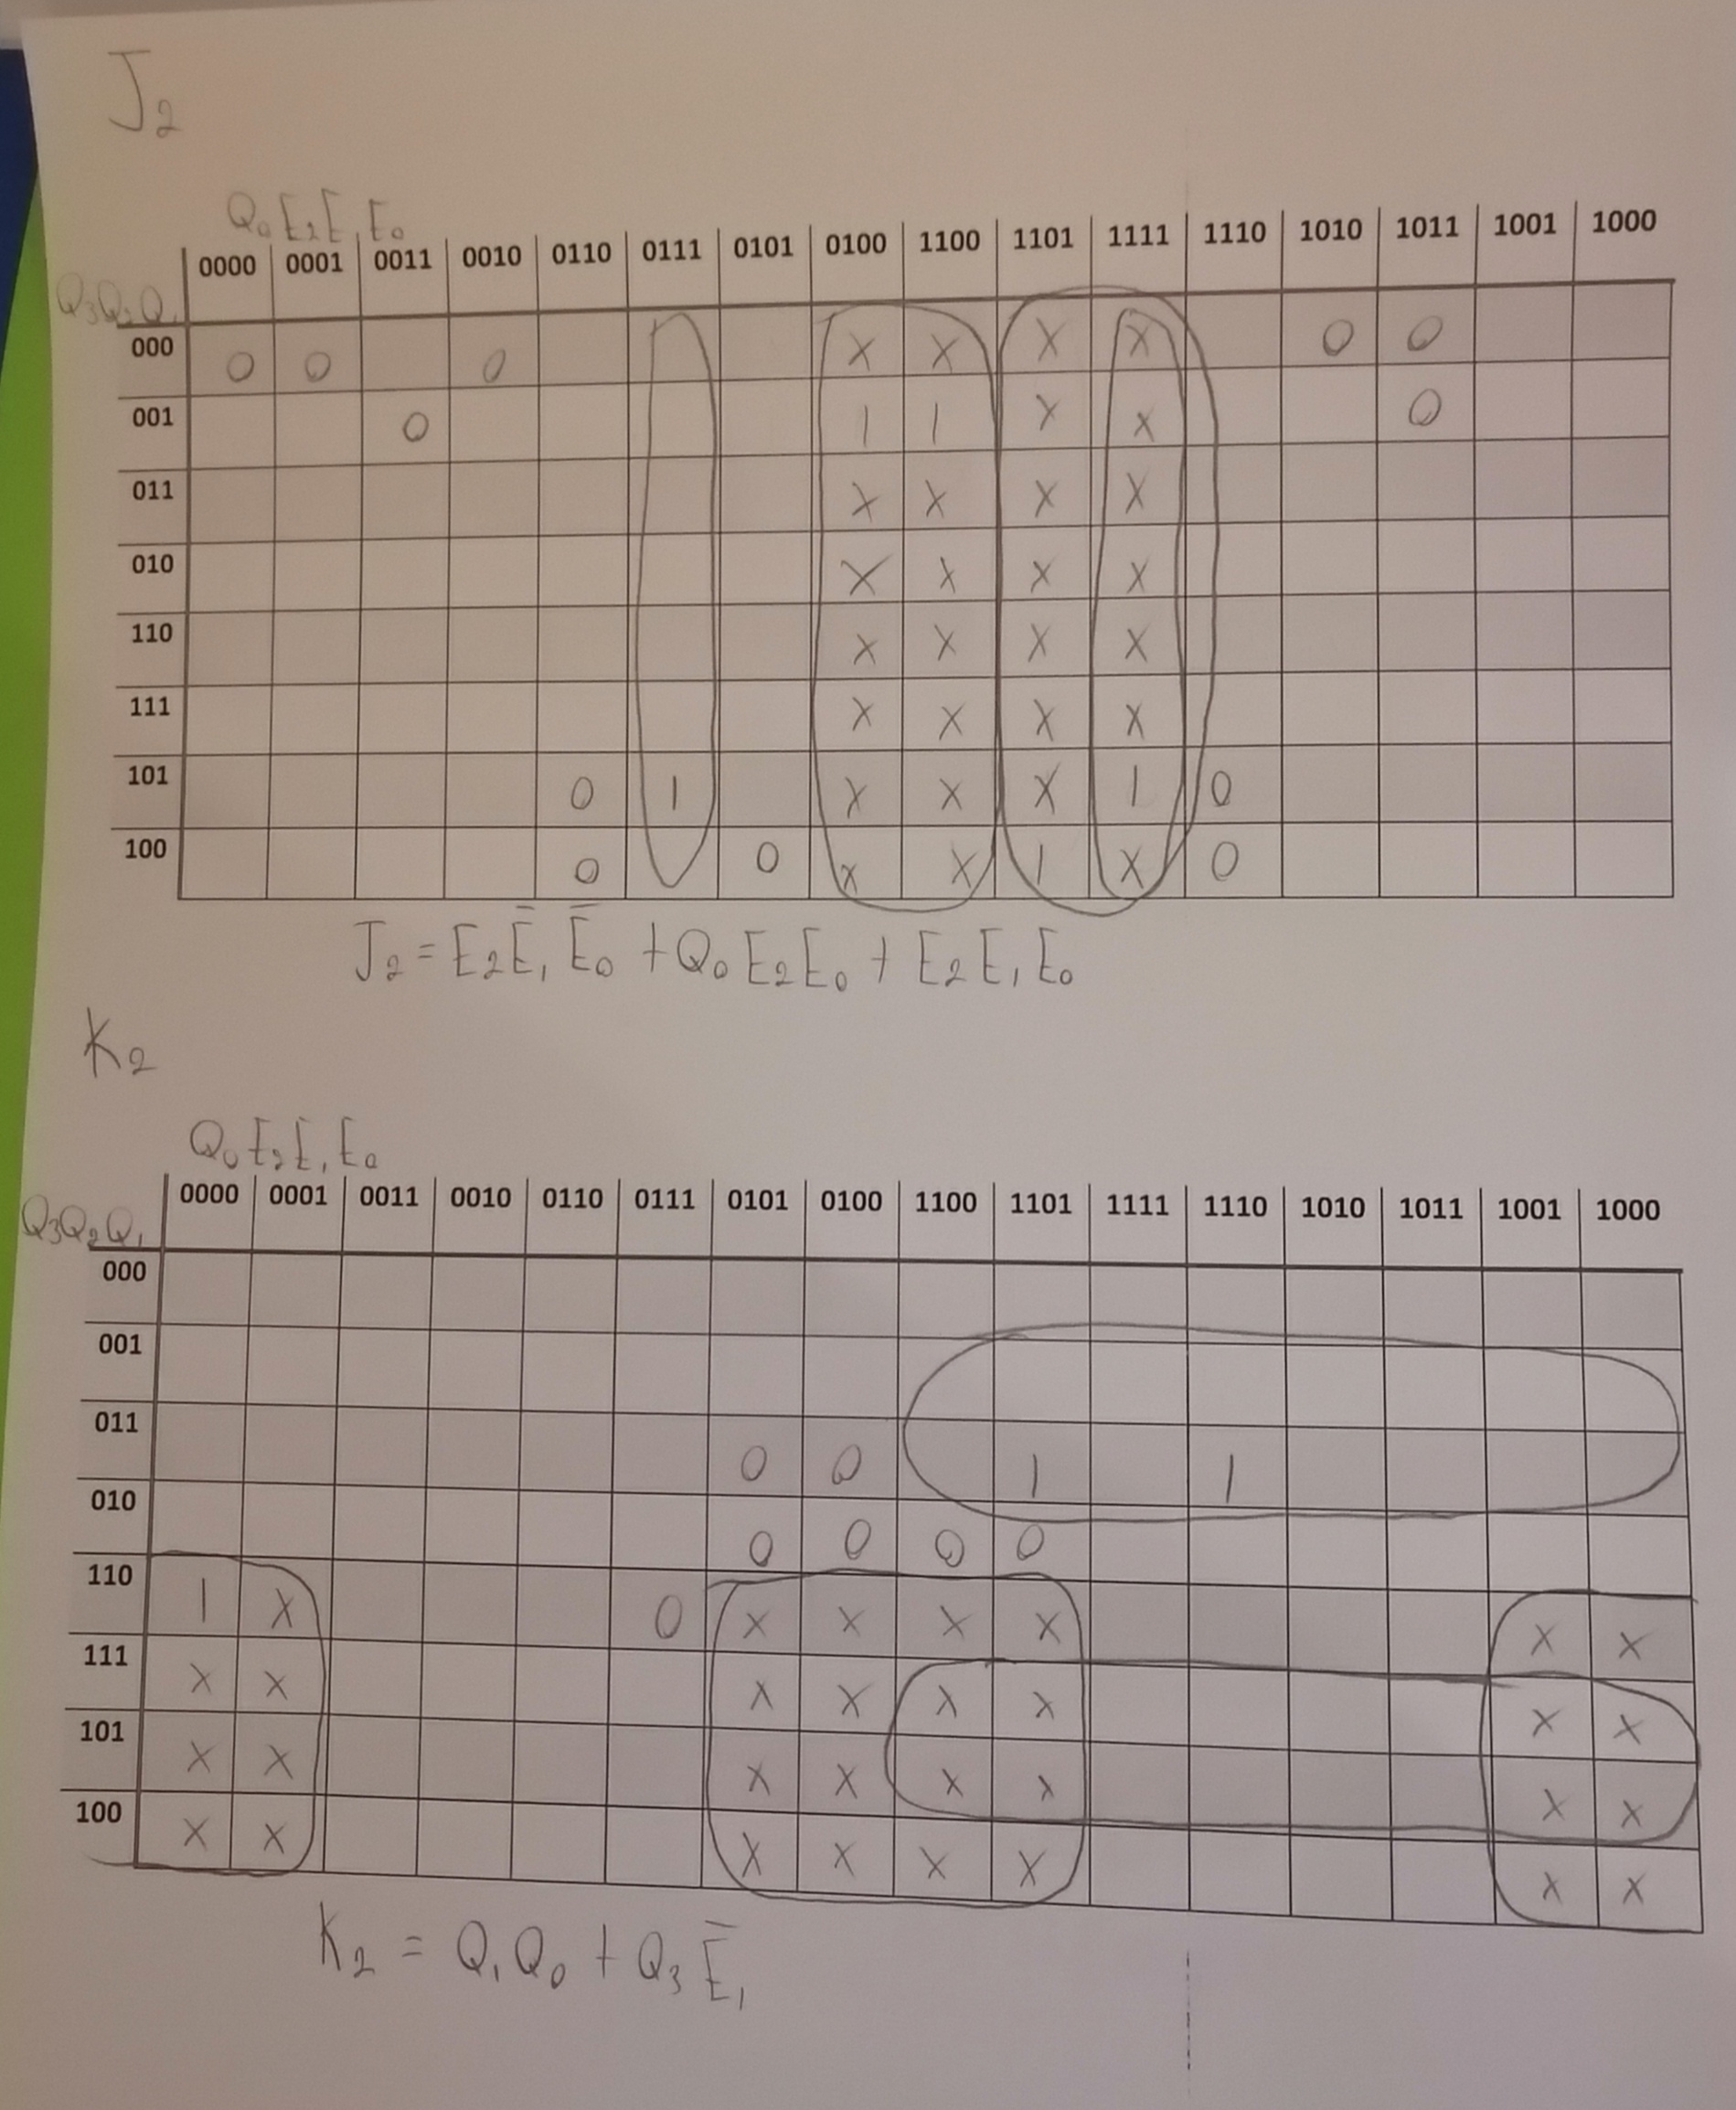 J₂
Q₀E₂E₁E₀
0000 0001 0011 0010 0110 0111 0101 0100 1100 1101 1111 1110 1010 1011 1001 1000
Q₃Q₂Q₁
000 0 0 0 X X X X 0 0
001 0 1 1 X X 0
011 X X X X
010 X X X X
110 X X X X
111 X X X X
101 0 1 X X X 1 0
100 0 0 X X 1 X 0
J₂ = E₂Ē₁Ē₀ + Q₀E₂E₀ + E₂E₁E₀
K₂
Q₀E₂E₁E₀
0000 0001 0011 0010 0110 0111 0101 0100 1100 1101 1111 1110 1010 1011 1001 1000
Q₃Q₂Q₁
000
001
011 0 0 1 1
010 0 0 0 0
110 1 X 0 X X X X X X
111 X X X X X X X X
101 X X X X X X X X
100 X X X X X X X X
K₂ = Q₁Q₀ + Q₃Ē₁